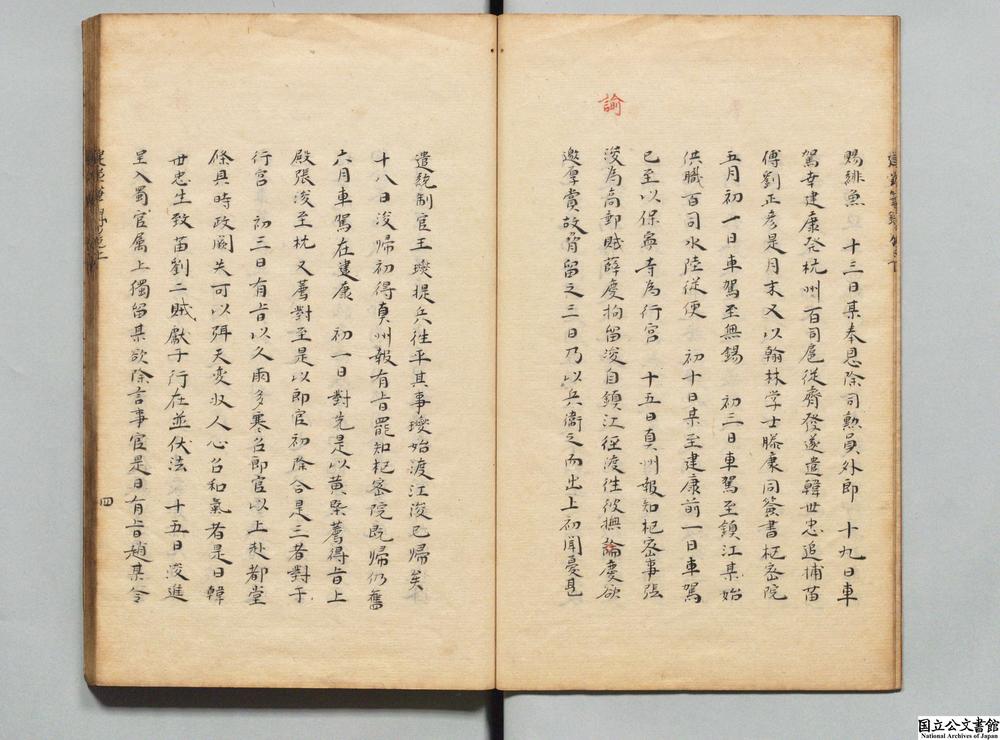 諭
賜緋魚 十三日某奉恩除司勲員外郎 十九日車
駕幸建康発杭州百司扈從齊發遂遣韓世忠追捕苗
傅劉正彦是月末又以翰林学士滕康同簽書枢密院
五月初一日車駕至無錫 初三日車駕至鎮江某始
供職百司水陸從便 初十日某至建康前一日車駕
已至以保寧寺為行宮 十五日真州報知枢密事張
浚為高郵賊薛慶拘留浚自鎮江徑渡徃彼撫論慶欲
邀厚賞故脅留之三日乃以兵衞之而出上初聞憂甚
遣統制官王𤫉提兵徃平其事𤫉始渡江浚已帰矣
十八日浚帰初得真州報有㫖罷知枢密院既帰仍舊
六月車駕在建康 初一日對先是以黄槩薦得㫖上
殿張浚至杭又薦對至是以郎官初除合是三者對于
行宮 初三日有㫖以久雨多寒召郎官以上赴都堂
條具時政闕失可以弭天変收人心召和氣者是日韓
世忠生致苗劉二賊獻于行在並伏法 十五日浚進
呈入蜀官属上獨留某欲除言事官是日有㫖趙某令
四
国立公文書館
National Archives of Japan